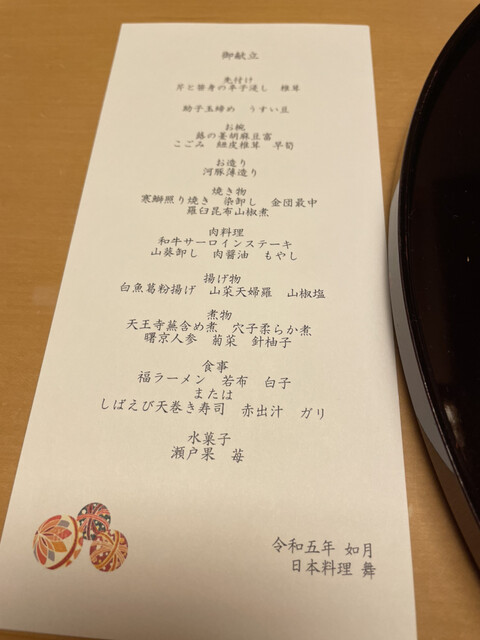 御献立
先付け
芹と笹身の辛子浸し 椎茸
助子玉締め うすい豆
お椀
蕗の薹胡麻豆富
こごみ 紐皮椎茸 早筍
お造り
河豚薄造り
焼き物
寒鰤照り焼き 染卸し 金団最中
羅臼昆布山椒煮
肉料理
和牛サーロインステーキ
山葵卸し 肉醤油 もやし
揚げ物
白魚葛粉揚げ 山菜天婦羅 山椒塩
煮物
天王寺蕪含め煮 穴子柔らか煮
曙京人参 菊菜 針柚子
食事
福ラーメン 若布 白子
または
しばえび天巻き寿司 赤出汁 ガリ
水菓子
瀬戸果 苺
令和五年 如月
日本料理 舞